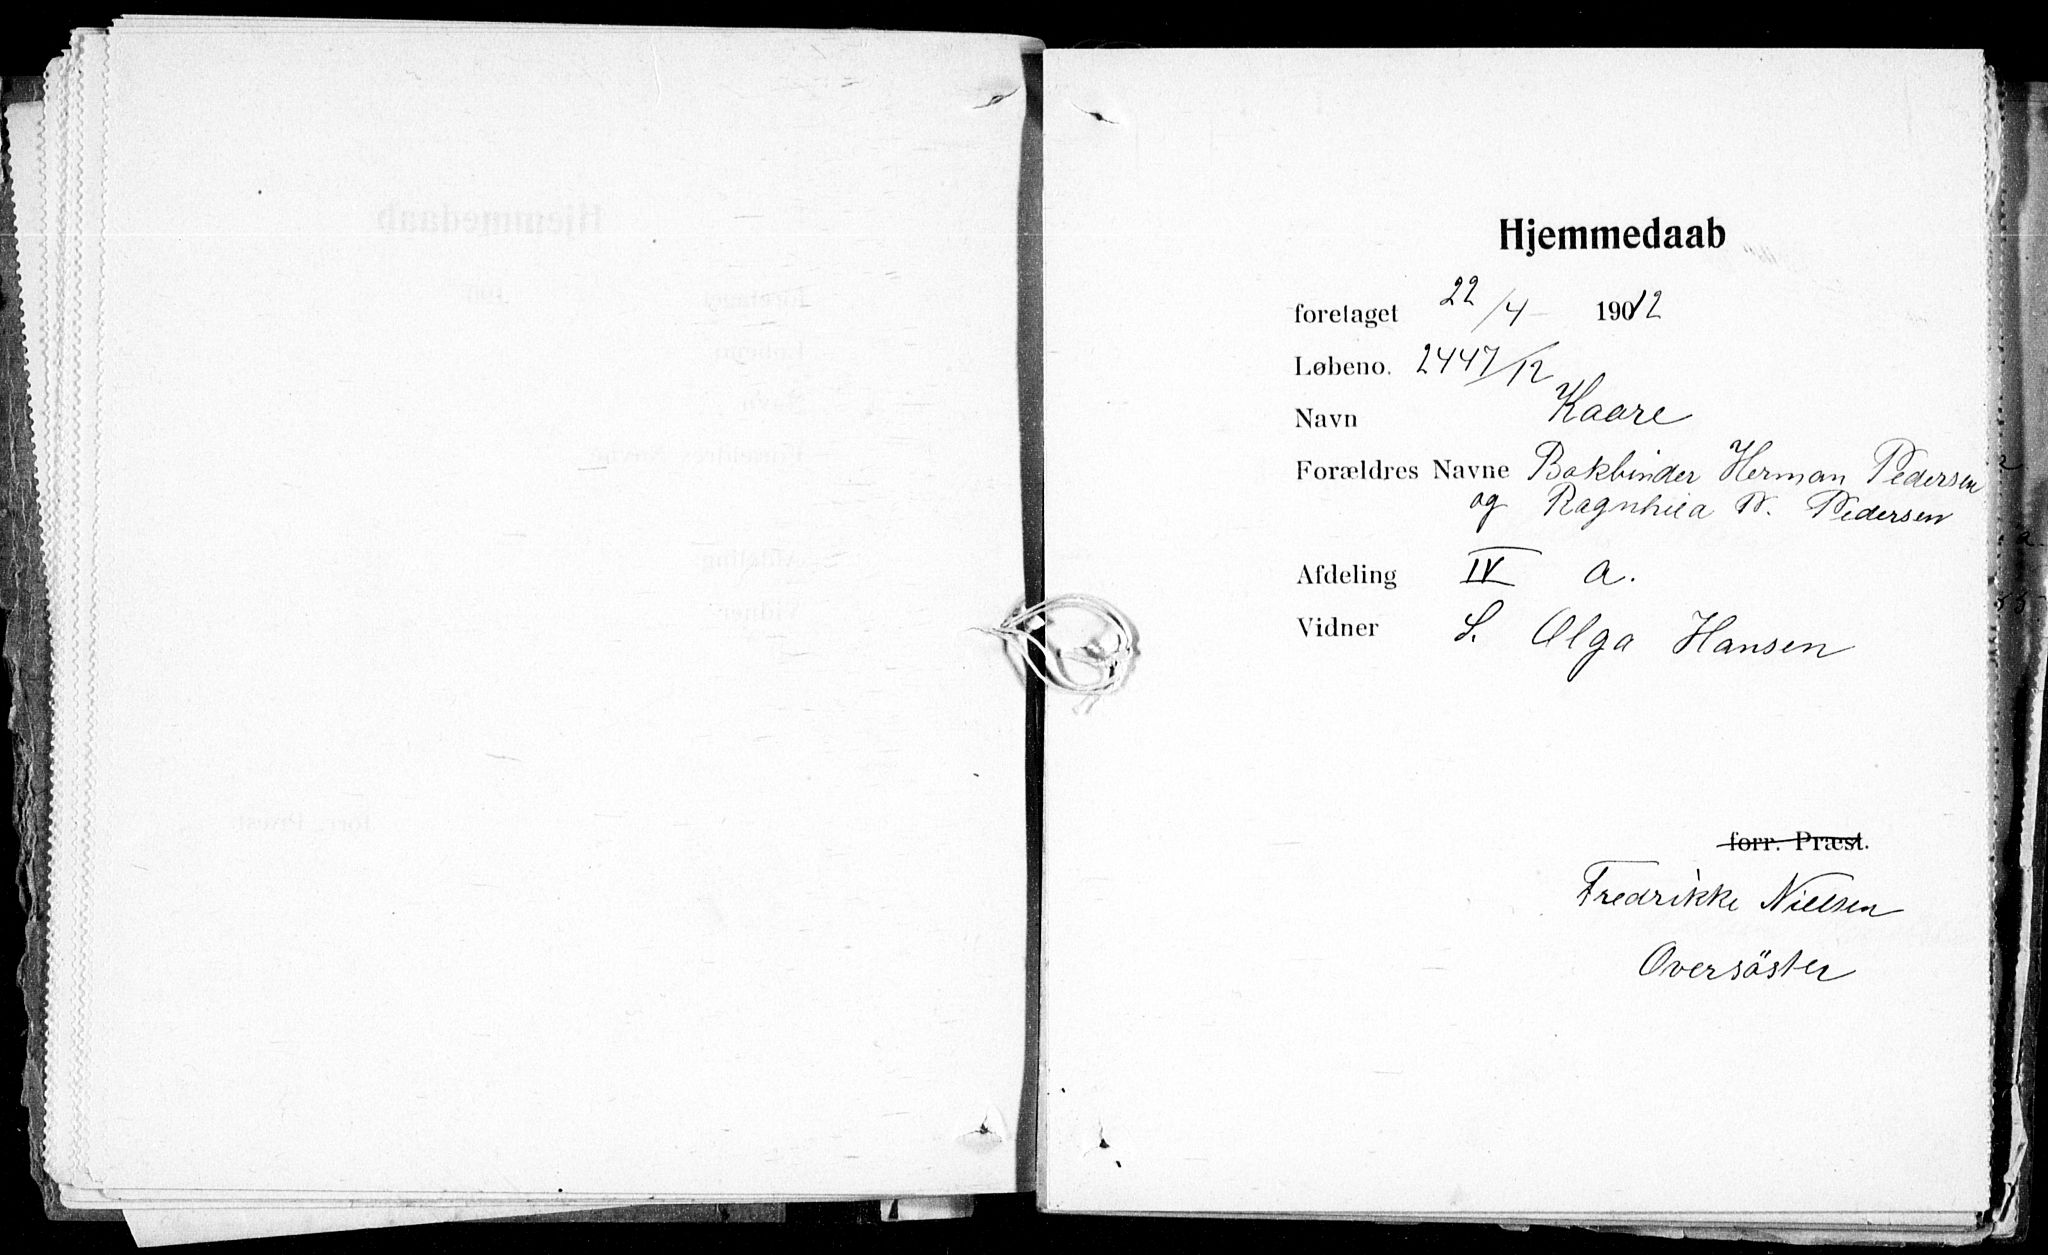 Hjemmedaab
foretaget 22/4 - 1912
Løbeno. 2447/12
Navn Kaare
Forældres Navne Bokbinder Herman Pedersen
og Ragnhild Pedersen
Afdeling IV a.
Vidner S. Olga Hansen
forr. Præst.
Fredrikke Nielsen
Oversöster